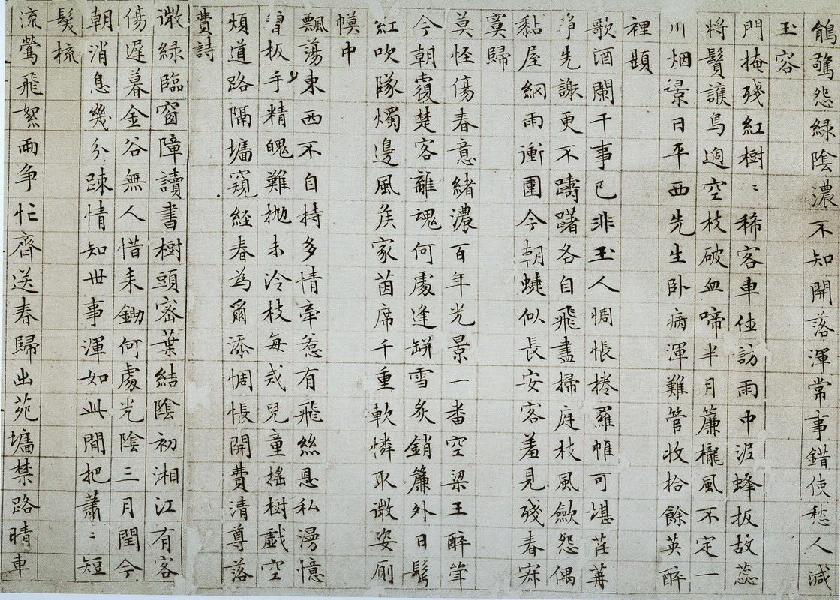 鵑聲怨綠陰濃不知開落渾常事錯使愁人減
玉容
門掩殘紅樹〻稀客車佳訪雨中泥蜂扳故蕊
將鬚護鳥過空枝破血啼半月簾櫳風不定一
川烟景日平西先生卧病渾難管收拾餘英醉
裡題
歌酒闌干事已非玉人惆悵捲羅帷可堪荏苒
爭先謝更不躊躇各自飛盡掃庭枝風歛怨偶
黏屋網雨衝圍今朝蜨似長安客羞見殘春寂
寞歸
莫怪傷春意緒濃百年光景一番空梁王醉聳
今朝覆楚客離魂何處逢缾雪炙銷簾外日髩
紅吹墜燭邊風矦家茵席千重軟憐取微姿厠
幙中
飄蕩東西不自持多情牽惹有飛絲恩私漫憶
曾扳手少精魄難拋未冷枝每戒兒童搖樹戲空
煩道路隔墻窺經春為爾添惆悵開費清尊落
費詩
微綠臨窗障讀書樹頭密葉結陰初湘江有客
傷遲暮金谷無人惜耒鋤何處光陰三月閏今
朝消息幾分踈情知世事渾如此閒把蕭〻短
髮梳
流鶯飛絮兩争忙齊送春歸出苑墻禁路晴車